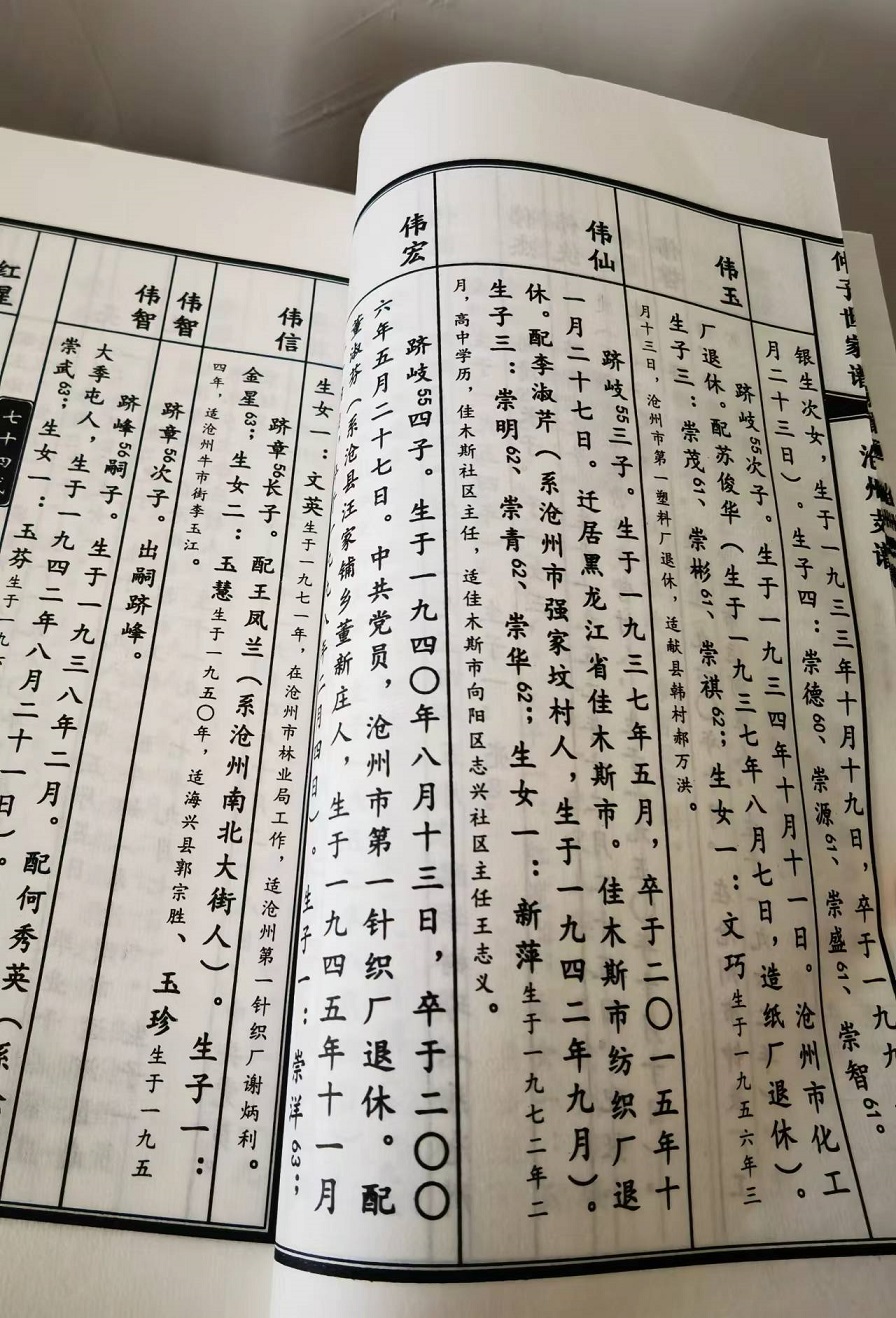 仲子世家谱
沧州支谱
银生次女，生于一九三三年十月十九日，卒于一九九
月二十三日）。生子四：崇德60、崇源61、崇盛61、崇智61。
伟玉
跻岐55次子。生于一九三四年十月十一日。沧州市化工
厂退休。配苏俊华（生于一九三七年八月七日，造纸厂退休）。
生子三：崇茂61、崇彬61、崇祺62；生女一：文巧生于一九五六年三
月十三日，沧州市第一塑料厂退休，适献县韩村郝万洪。
伟仙
跻岐55三子。生于一九三七年五月，卒于二〇一五年十
一月二十七日。迁居黑龙江省佳木斯市。佳木斯市纺织厂退
休。配李淑芹（系沧州市强家坟村人，生于一九四二年九月）。
生子三：崇明62、崇青62、崇华62；生女一：新萍生于一九七二年二
月，高中学历，佳木斯社区主任，适佳木斯市向阳区志兴社区主任王志义。
伟宏
跻岐55四子。生于一九四〇年八月十三日，卒于二〇〇
六年五月二十七日。中共党员，沧州市第一针织厂退休。配
董淑芬（系沧县汪家铺乡董新庄人，生于一九四五年十一月
生子一：崇洋63；
生女一：文英生于一九七一年，在沧州市林业局工作，适沧州第一针织厂谢炳利。
伟信
跻章56长子。配王凤兰（系沧州南北大街人）。生子一：
金星63；生女二：玉慧生于一九五〇年，适海兴县郭宗胜、玉珍生于一九五
四年，适沧州牛市街李玉江。
伟智
跻章56次子。出嗣跻峰。
伟智
跻峰56嗣子。生于一九三八年二月。配何秀英（系
大季屯人，生于一九四二年八月二十一日）。
崇武63；生女一：玉芬生于一九
红星
七十四